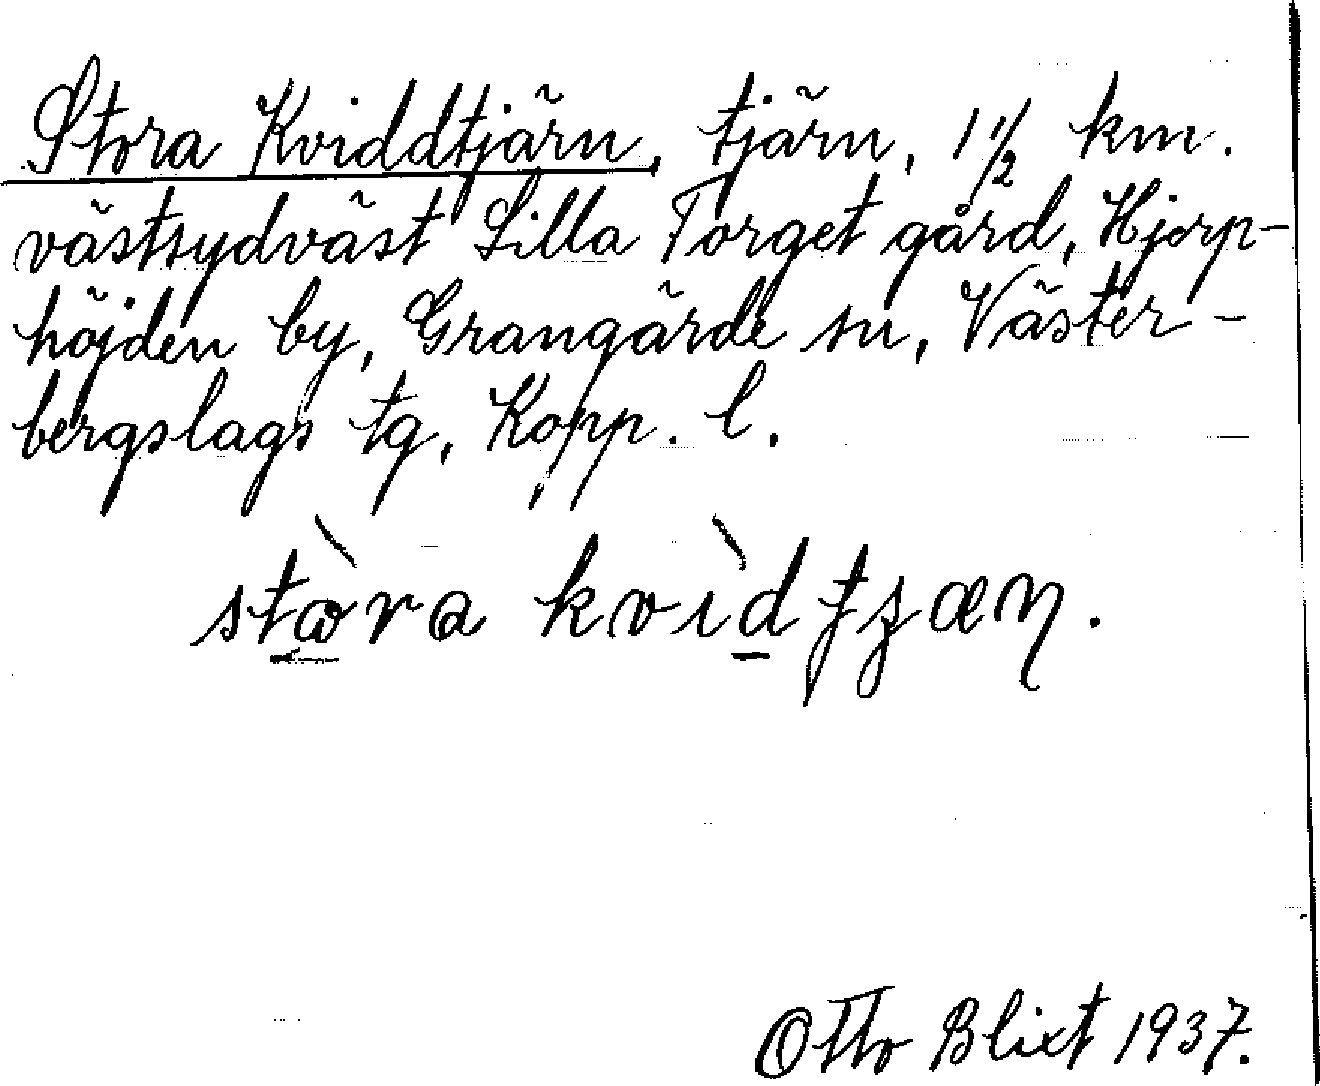 Stora Kviddtjärn, tjärn, 1 1/2 km.
västsydväst Lilla Torget gård, Hjorp-
höjden by, Grangärde sn, Väster-
bergslags tg, Kopp. l.
Otto Blixt 1937.